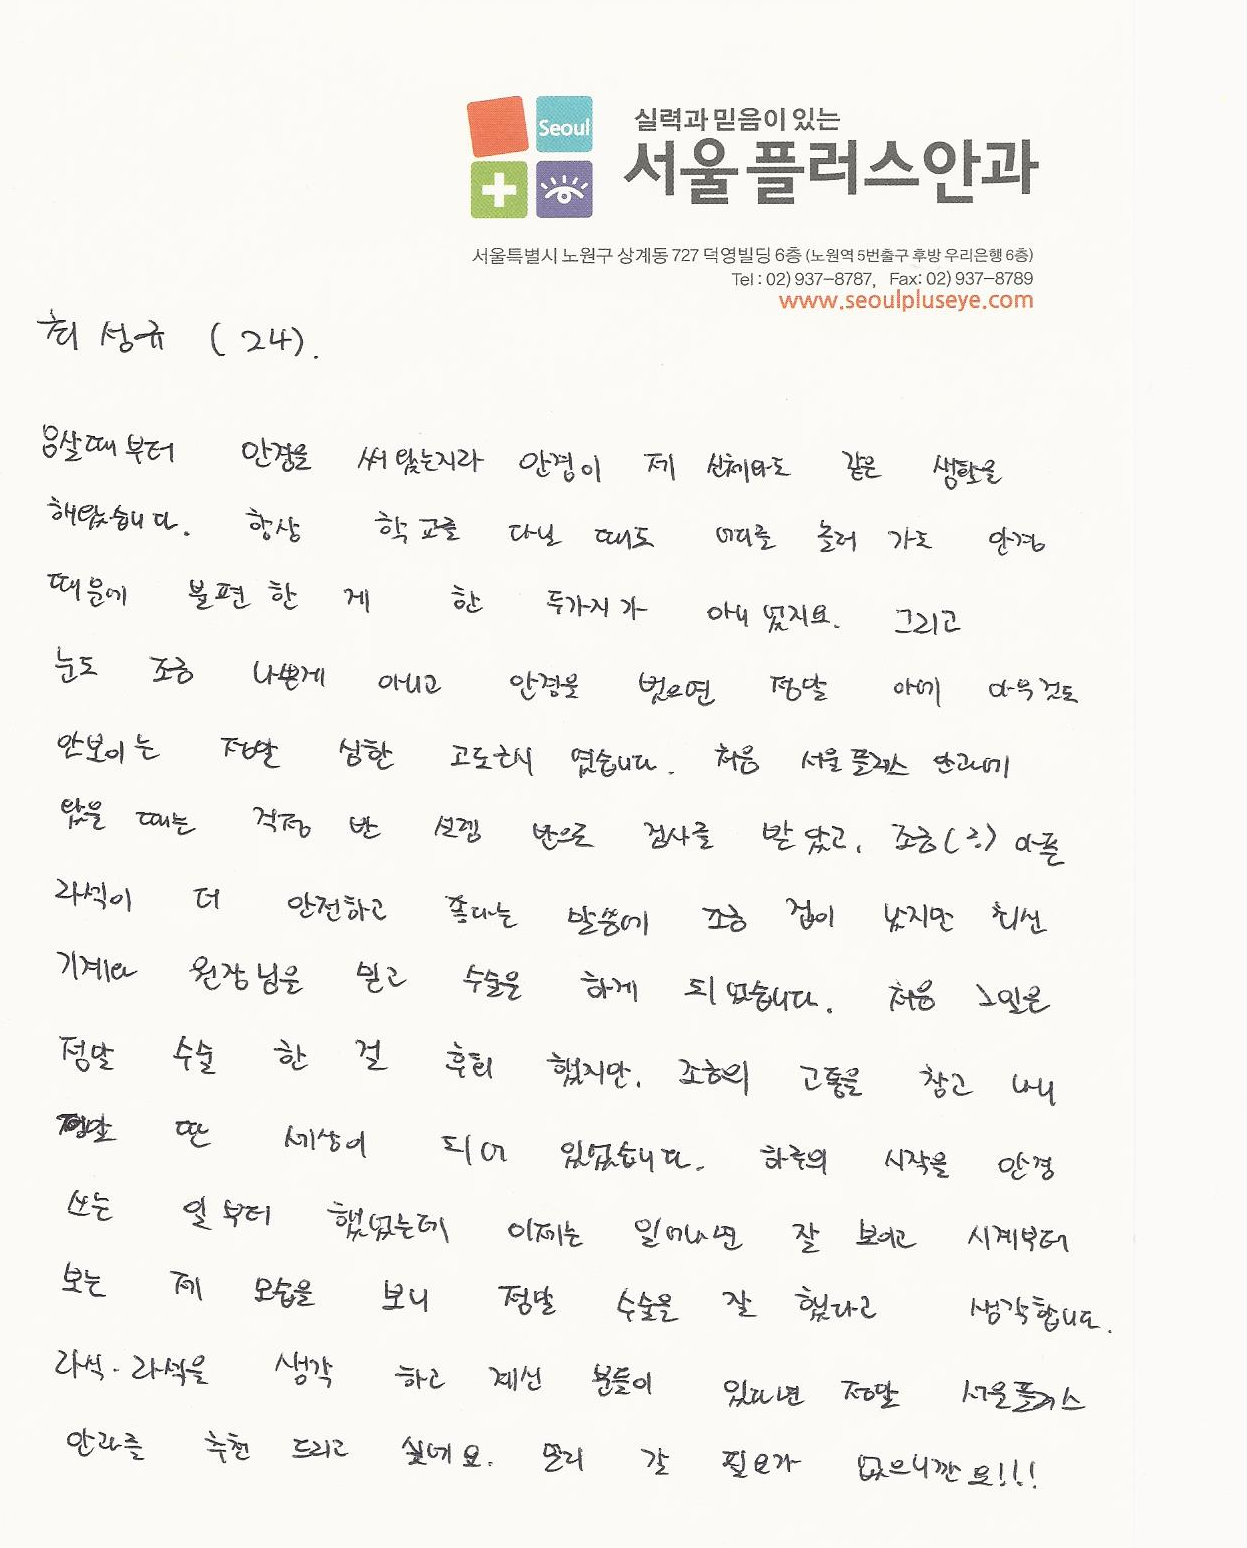 Seoul
실력과 믿음이 있는
서울플러스안과
서울특별시 노원구 상계동 727 덕영빌딩 6층 (노원역 5번출구 후방 우리은행 6층)
Tel : 02) 937-8787, Fax: 02) 937-8789
www.seoulpluseye.com
최성규 (24).
살때부터 안경을 써 왔는지라 안경이 제 신체와도 같은 생활을
해왔습니다. 항상 학교를 다닐 때도 어디를 놀러 가도 안경
때문에 불편한 게 한 두가지가 아니었지요. 그리고
눈도 조금 나쁜게 아니고 안경을 벗으면 정말 아예 아무것도
안보이는 정말 심한 고도근시 였습니다. 처음 서울플러스 안과에
왔을 때는 걱정 반 설렘 반으로 검사를 받았고, 조금(?) 아픈
라섹이 더 안전하고 좋다는 말씀에 조금 겁이 났지만 최신
기계와 원장님을 믿고 수술을 하게 되었습니다. 처음 3일은
정말 수술 한 걸 후회 했지만, 조금의 고통을 참고 나니
정말 딴 세상이 되어 있었습니다. 하루의 시작을 안경
쓰는 일부터 했었는데 이제는 일어나면 잘 보이고 시계부터
보는 제 모습을 보니 정말 수술을 잘 했다고 생각합니다.
라식·라섹을 생각 하고 계신 분들이 있다면 정말 서울플러스
안과를 추천 드리고 싶네요. 멀리 갈 필요가 없으니깐요!!!